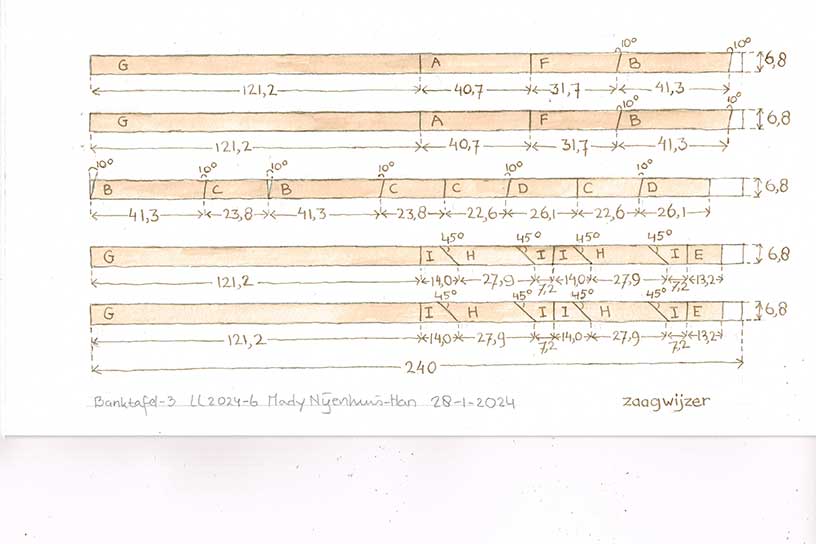 10° 10°
G A F B 6,8
121,2 40,7 31,7 41,3
10° 10°
G A F B 6,8
121,2 40,7 31,7 41,3
10° 10° 10° 10° 10° 10°
B C B C C D C D 6,8
41,3 23,8 41,3 23,8 22,6 26,1 22,6 26,1
45° 45° 45° 45°
G I H I I H I E 6,8
121,2 14,0 27,9 7,2 14,0 27,9 7,2 13,2
45° 45° 45° 45°
G I H I I H I E 6,8
121,2 14,0 27,9 7,2 14,0 27,9 7,2 13,2
240
Banktafel-3 LL2024-6 Mady Nijenhuis-Han 28-1-2024 zaagwijzer